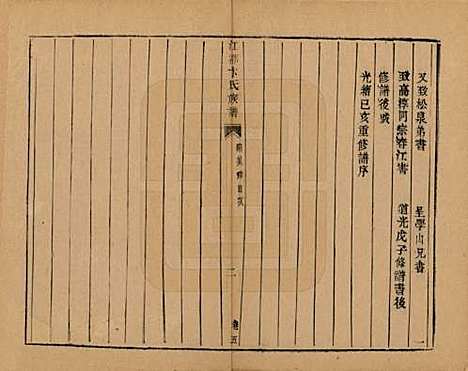 又致松泉弟書
呈學山兄書
致高淳同宗春江書
道光戊子修譜書後
修譜後跋
光緒己亥重修譜序
一
江都卞氏族譜
目次
二
卷五